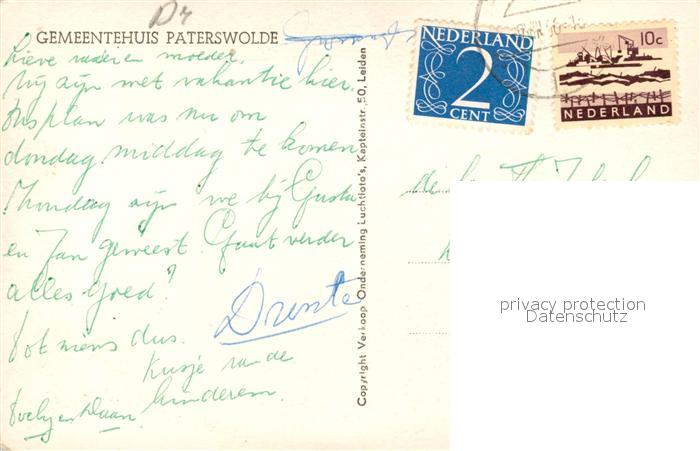 Dr
GEMEENTEHUIS PATERSWOLDE
Lieve vader en moeder.
Wij zijn met vakantie hier.
Ons plan was nu om
dondag middag te komen.
Mondag zijn we bij Gusta
en Jan geweest. Gaat verder
alles goed?
Drente
Tot ziens dus.
Kusje van de
kinderen.
en Daan
Copyright Verkoop Onderneming Luchtfoto's, Kapteinstr. 50, Leiden
NEDERLAND
2
CENT
10c
NEDERLAND
privacy protection
Datenschutz